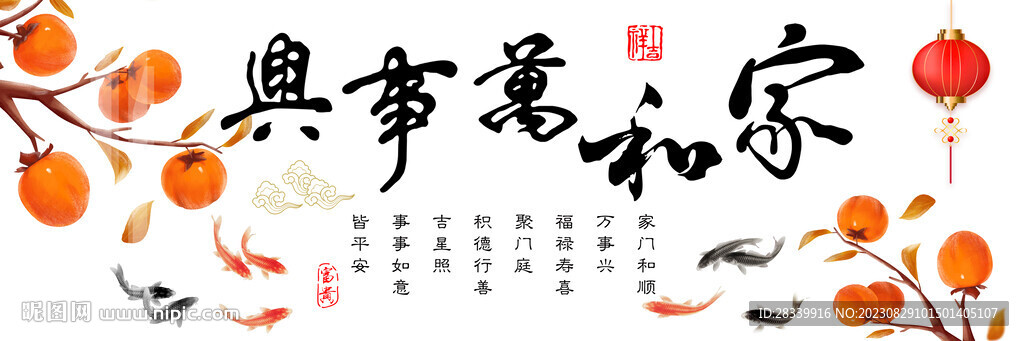 家和萬事興
吉祥
家门和顺
万事兴
福禄寿喜
聚门庭
积德行善
吉星照
事事如意
皆平安
富貴
昵图网 www.nipic.com
ID:28339916 NO:20230829101501405107